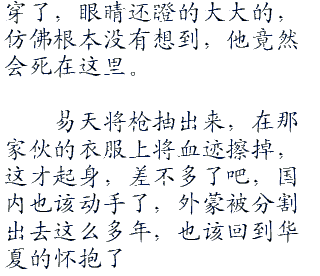 穿了，眼睛还蹬的大大的，
仿佛根本没有想到，他竟然
会死在这里。
易天将枪抽出来，在那
家伙的衣服上将血迹擦掉，
这才起身，差不多了吧，国
内也该动手了，外蒙被分割
出去这么多年，也该回到华
夏的怀抱了